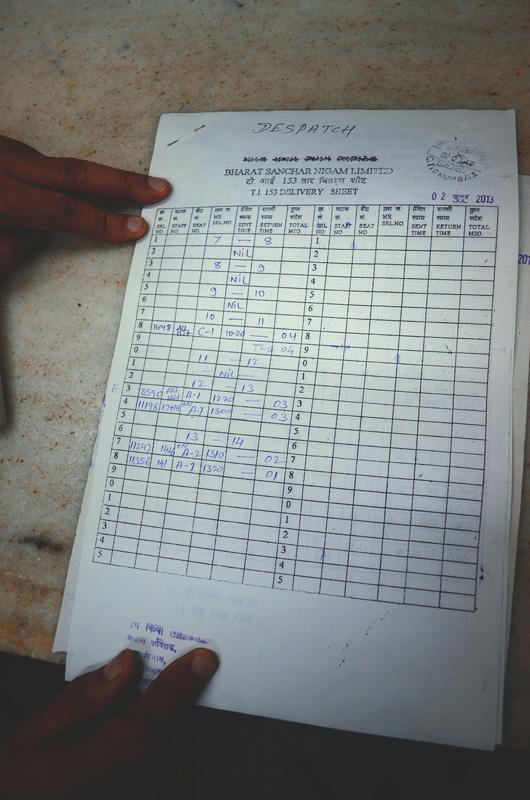 DESPATCH
BHARAT SANCHAR NIGAM LIMITED
टी. आई. 153 तार वितरण शीट
T.I. 153 DELIVERY SHEET
0 2 2013
क्र. सं. स्टाफ सं. बीट सं. क्रम सं. प्रेषित समय वापसी समय कुल संदेश क्र. सं. स्टाफ सं. बीट सं. क्रम सं. प्रेषित समय वापसी समय कुल संदेश
SRL NO STAFF NO BEAT NO MR SRL.NO SENT TIME RETURN TIME TOTAL MSG. SRL NO STAFF NO BEAT NO MR SRL.NO SENT TIME RETURN TIME TOTAL MSG.
1 7 — 8 1
2 NiL 2
3 8 — 9 3
4 NiL 4
5 9 — 10 5
6 NiL 6
7 10 — 11 7
8 C-1 10-20 — 04 8
9 04 9
0 11 — 12 0
1 NiL 1
2 12 — 13 2
3 8590 B-1 1220 — 03 3
4 11198 A-1 1300 — 03 4
5 5
6 13 — 14 6
7 11242 A-2 1310 — 02 7
8 11356 141 A-1 1320 — 01 8
9 9
0 0
1 1
2 2
3 3
4 4
5 5